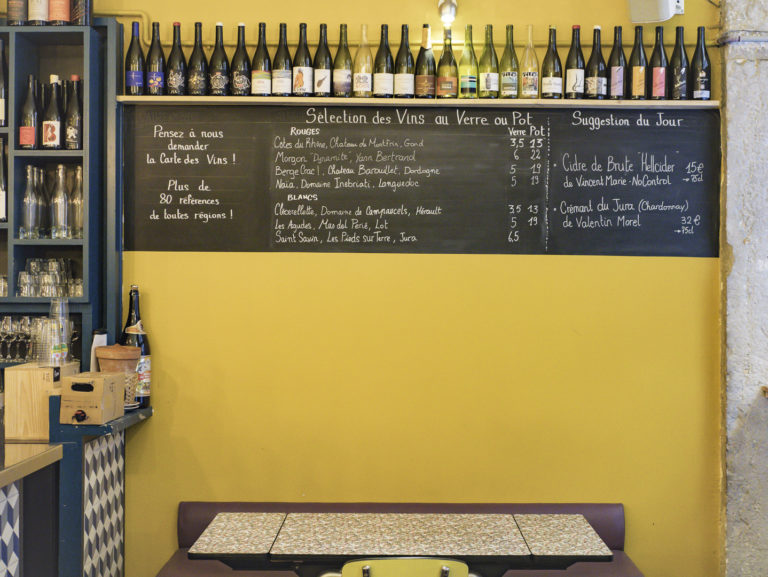 Pensez à nous
demander
la Carte des Vins !
Plus de
80 références
de toutes régions !
Sélection des Vins au Verre ou Pot
ROUGES Verre Pot
Côtes du Rhône, Chateau de Montfrin, Gard 3,5 13
Morgon "Dynamite", Yann Bertrand 6 22
Berge Crac!, Chateau Barouillet, Dordogne 5 19
Naïa, Domaine Languedoc 5 19
BLANCS
Domaine de Hérault 3,5 13
Les Agudes, Mas del Périé, Lot 5 19
Saint Savin, Les Pieds sur Terre, Jura 6,5
Suggestion du Jour
Cidre de Brute "Hellcider" 15€
de Vincent Marie - NoControl → 75cl
* Crémant du Jura (Chardonnay)
de Valentin Morel 32€
→ 75cl